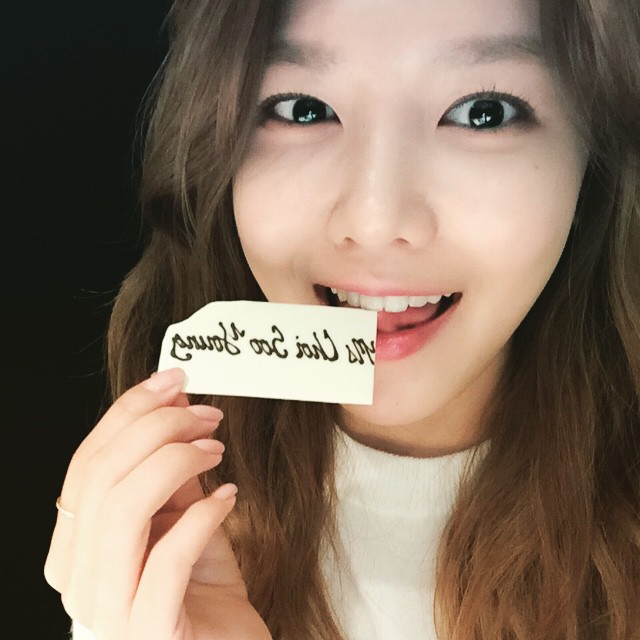 Ms Choi Soo Young